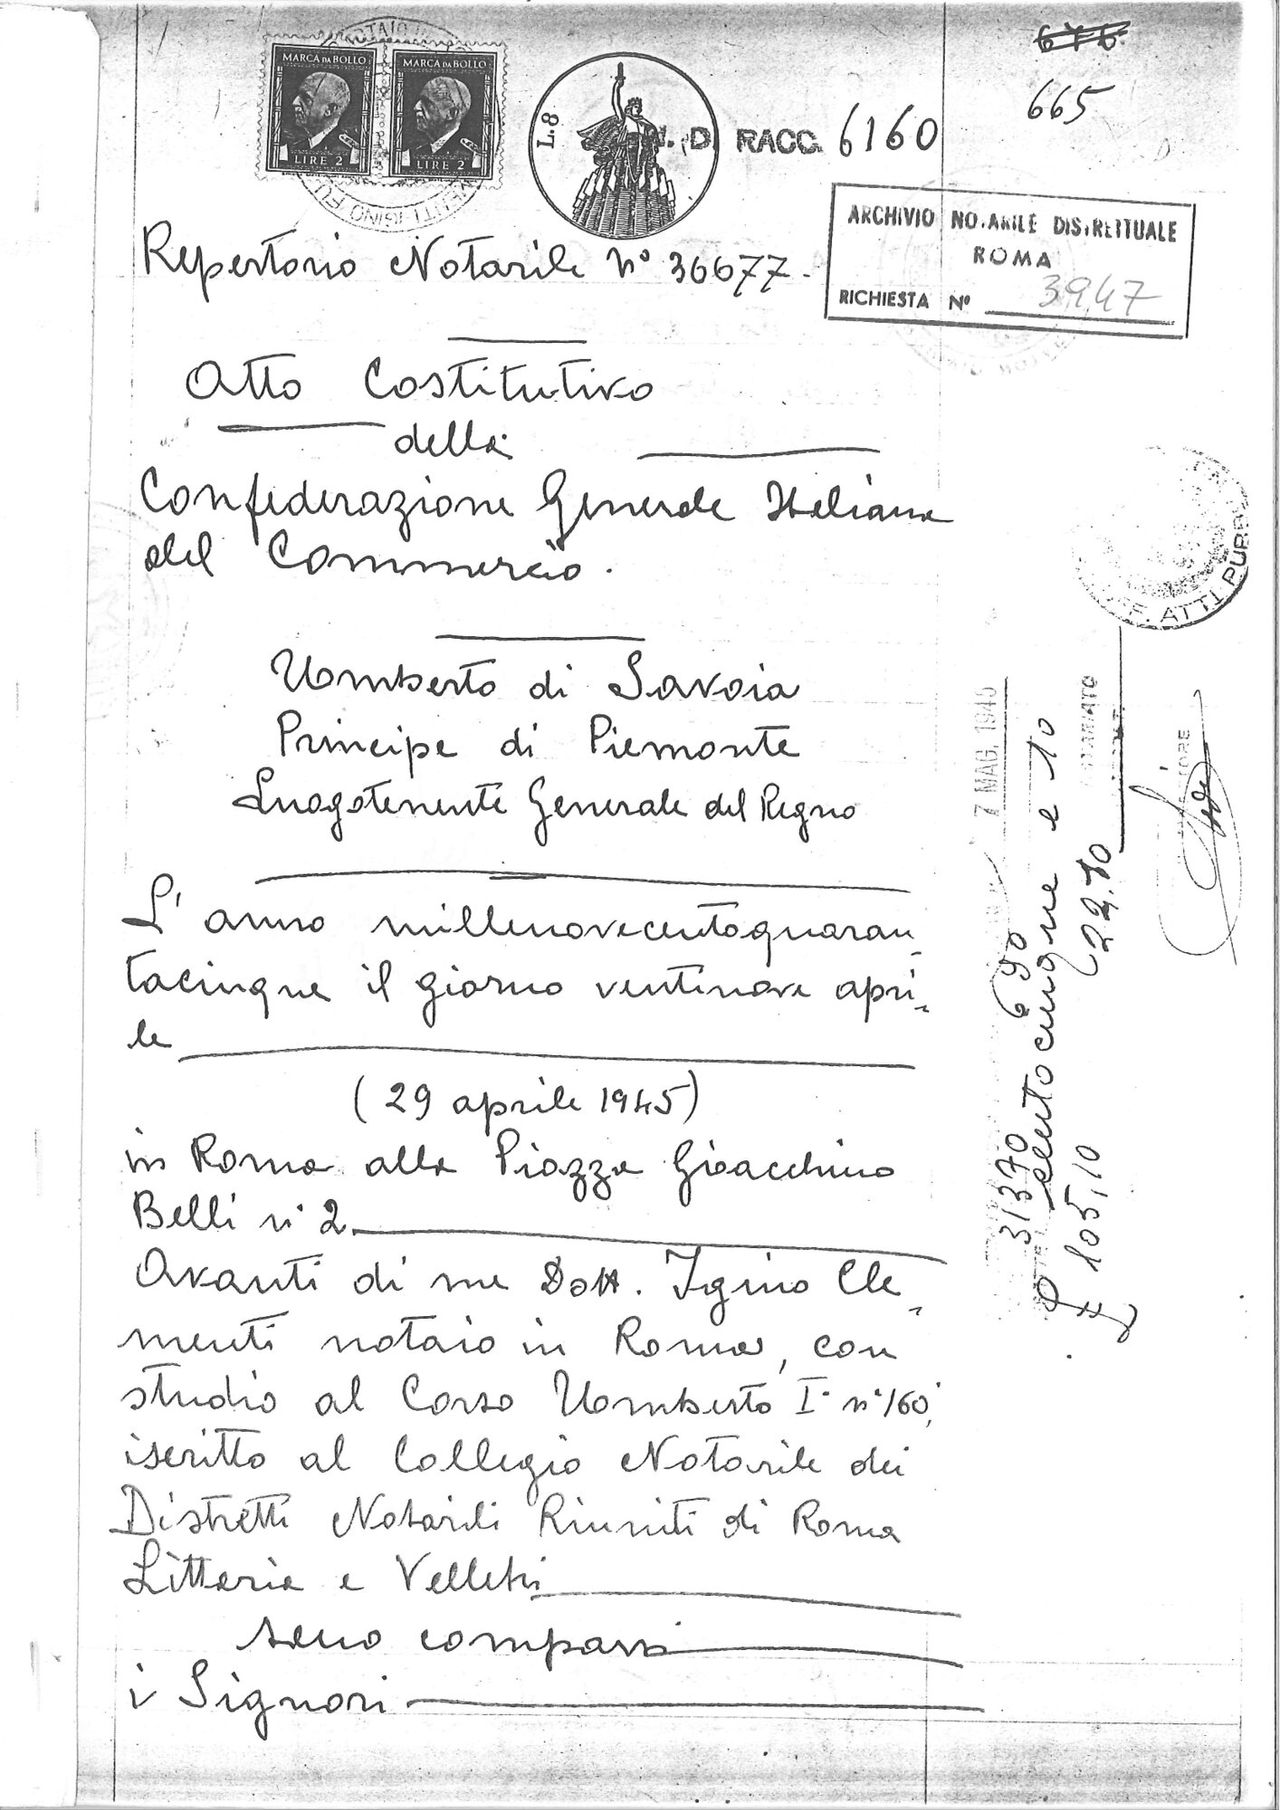 676
665
MARCA DA BOLLO
MARCA DA BOLLO
LIRE 2
LIRE 2
L.8
RACC. 6160
ARCHIVIO NOTARILE DISTRETTUALE
ROMA
RICHIESTA N° 3947
Repertorio Notarile n° 36677.
Atto Costitutivo
della
Confederazione Generale Italiana
del Commercio.
Umberto di Savoia
Principe di Piemonte
Luogotenente Generale del Regno
L'anno millenovecentoquaran-
tacinque il giorno ventinove apri-
le
(29 aprile 1945)
in Roma alla Piazza Gioacchino
Belli n° 2
Avanti di me Dott. Igino Cle-
menti notaio in Roma, con
studio al Corso Umberto I° n° 160,
iscritto al Collegio Notarile dei
Distretti Notarili Riuniti di Roma
Littoria e Velletri
sono comparsi
i Signori
F. ATTI PUBB
7 MAG. 1945
31370 690
centocinque e 10
£ 105,10
22.70